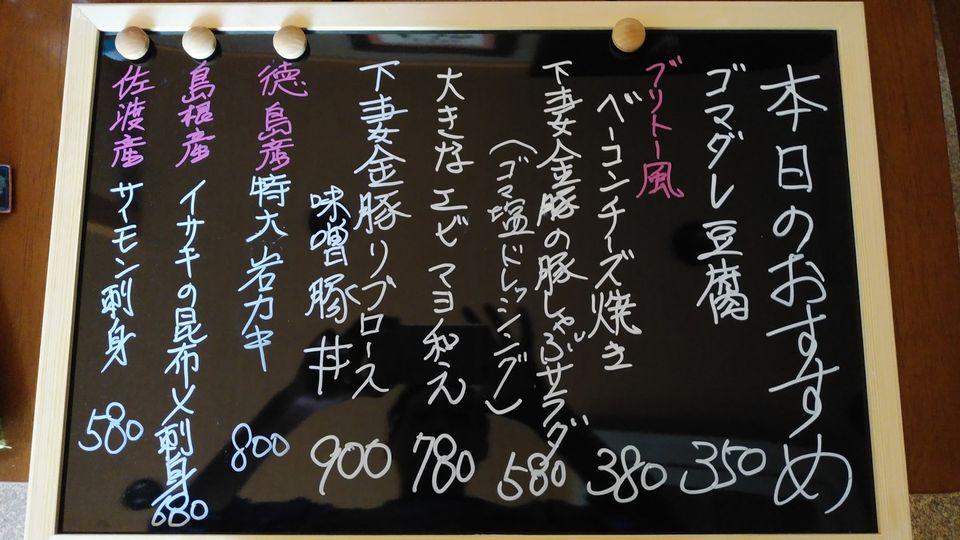 本日のおすすめ
ゴマダレ豆腐 350
ブリトー風
ベーコンチーズ焼き 380
下妻金豚の豚しゃぶサラダ 580
(ゴマ塩ドレッシング)
大きなエビマヨ和え 780
下妻金豚リブロース
味噌豚丼 900
徳島産 特大岩カキ 800
島根産 イサキの昆布〆刺身 680
佐渡産 サイモン刺身 580